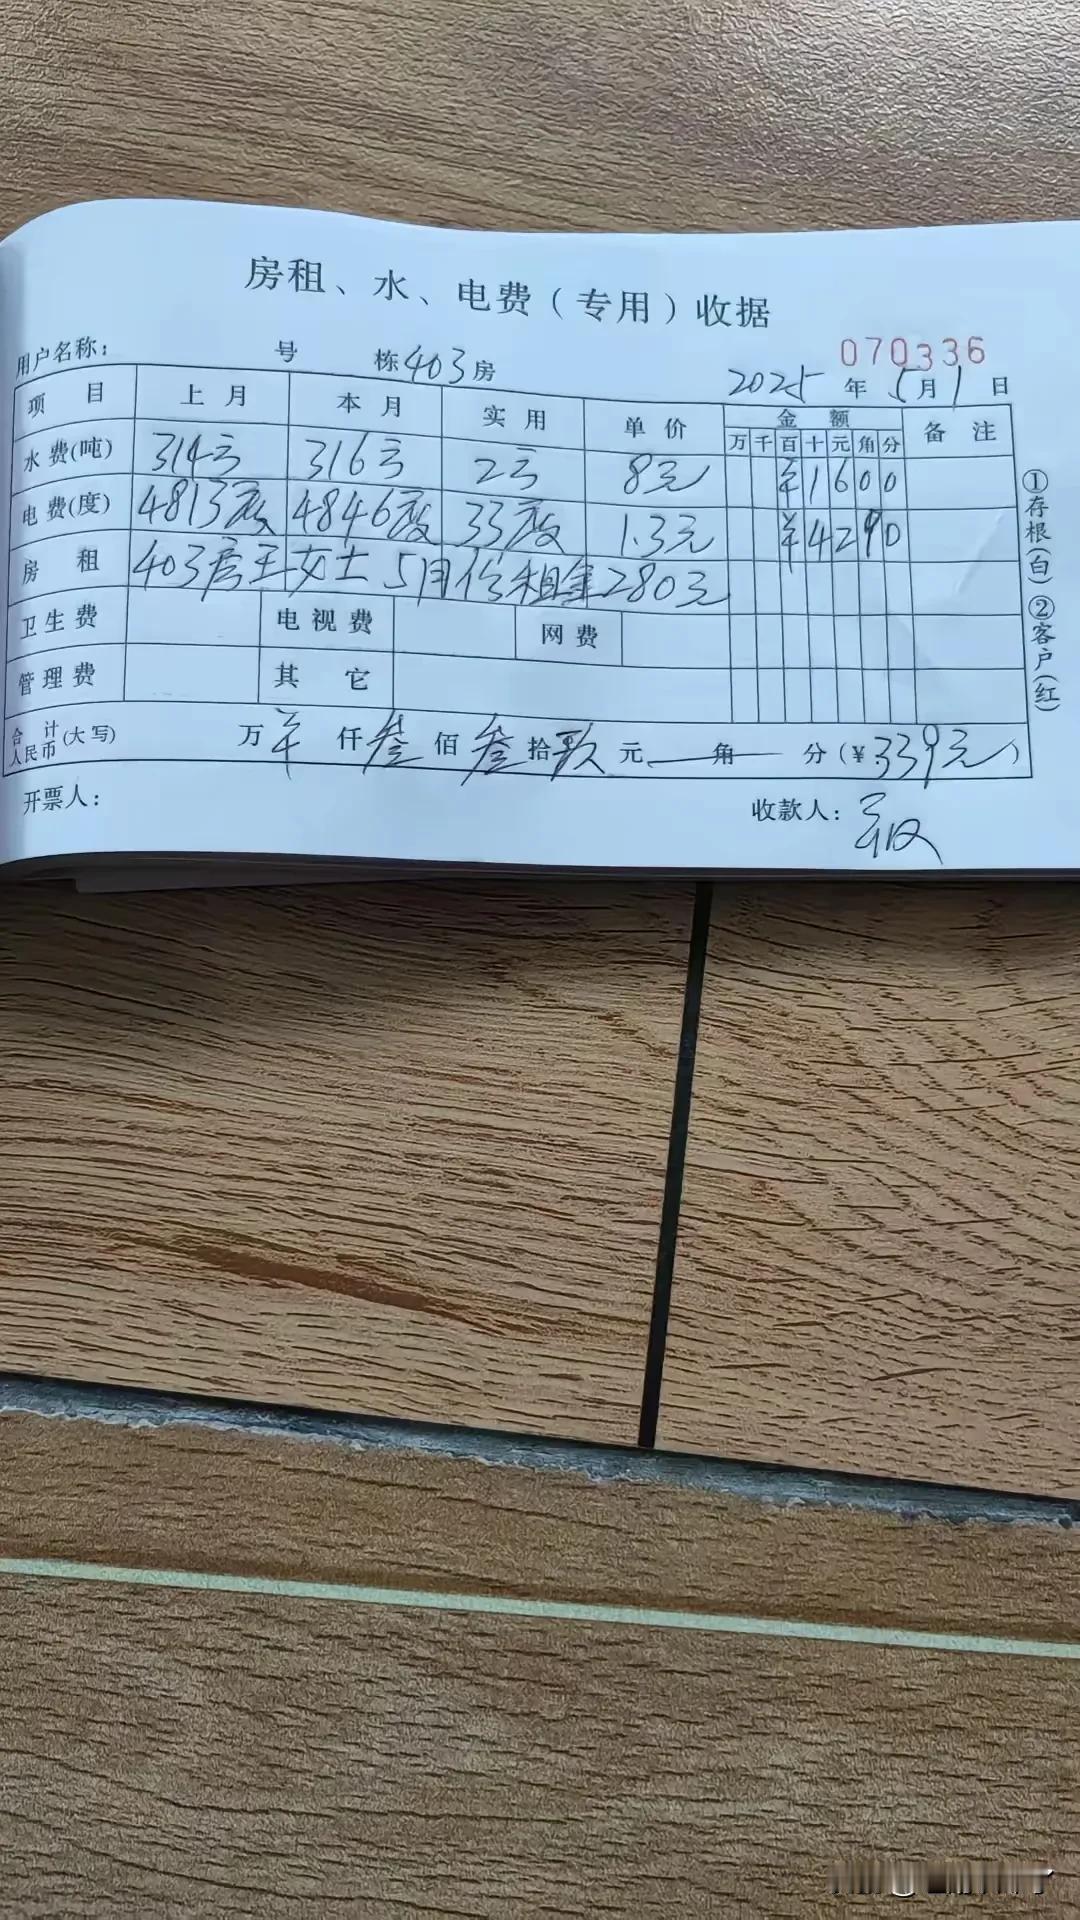 房租、水、电费(专用)收据
070336
用户名称： 号 栋403房 2025年5月1日
项目 上月 本月 实用 单价 金额 备注
万千百十元角分
水费(吨) 314方 316方 2方 8元 ¥1600
电费(度) 4813度 4846度 33度 1.3元 ¥4290
房租 403房王女士5月份租金280元
卫生费 电视费 网费
管理费 其它
合计人民币(大写) 万 仟叁佰叁拾玖元 角 分(¥339元)
开票人： 收款人：
①存根(白)②客户(红)